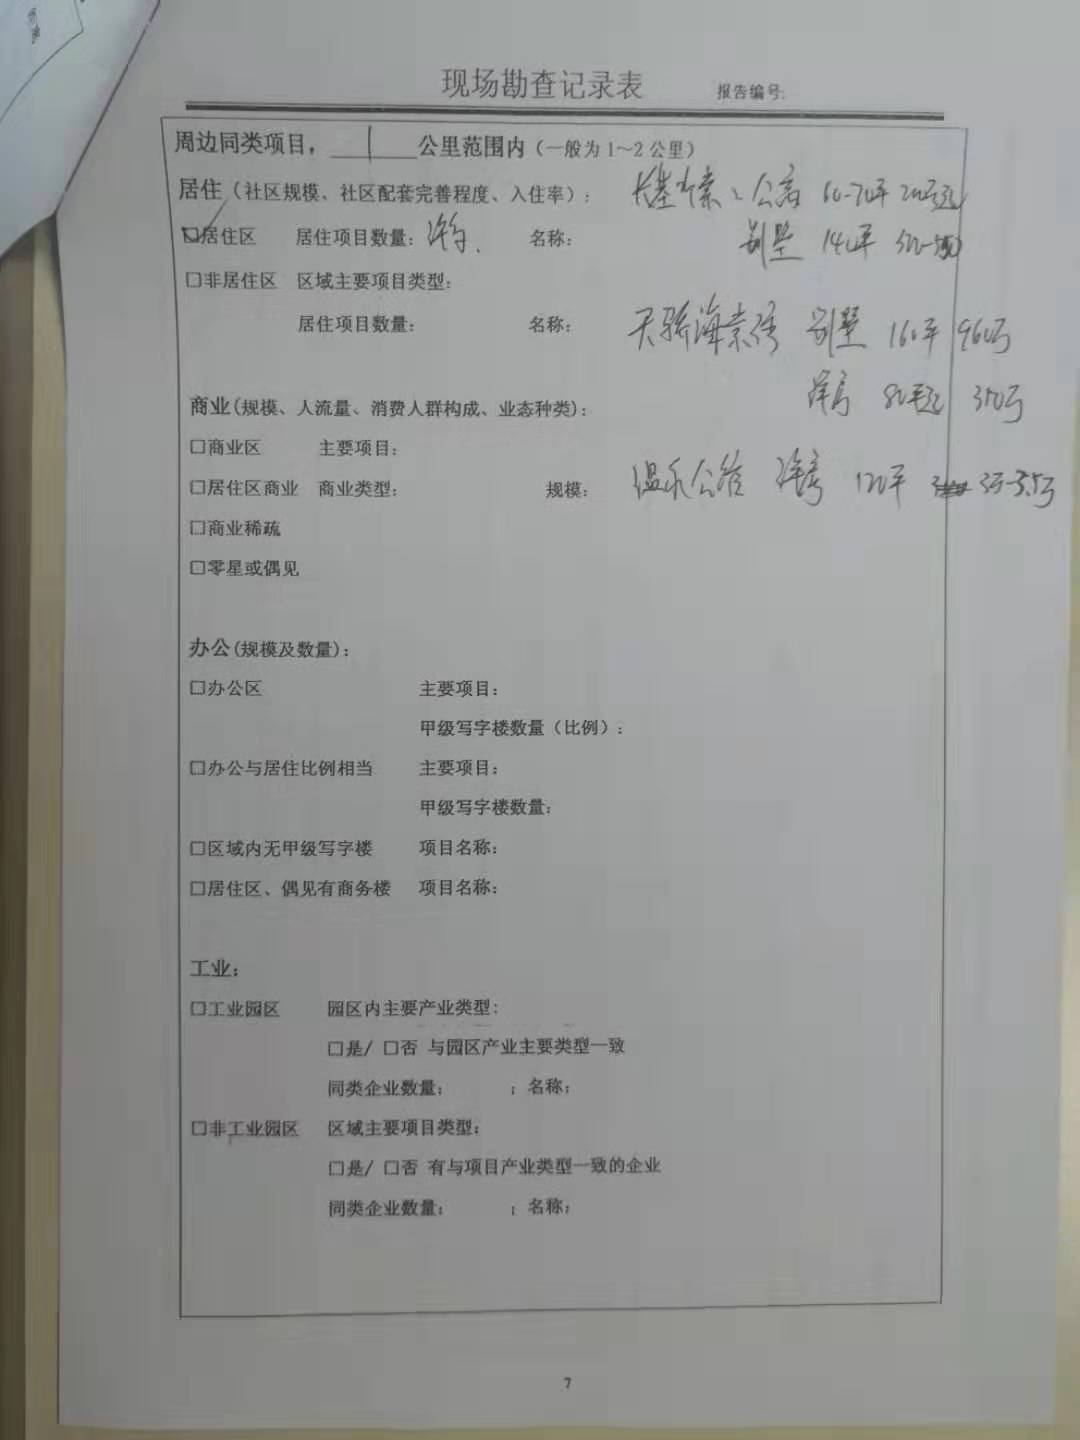 现场勘查记录表 报告编号:
周边同类项目, 1 公里范围内(一般为1~2公里)
居住(社区规模、社区配套完善程度、入住率): 公寓 60-70平 200万起
☑居住区 居住项目数量: 名称: 别墅 140平
□非居住区 区域主要项目类型:
居住项目数量: 名称: 天骄海 别墅 160平 960万
洋房 80平起 350万
商业(规模、人流量、消费人群构成、业态种类):
□商业区 主要项目:
□居住区商业 商业类型: 规模: 公馆 洋房 120平 3万-3.5万
□商业稀疏
□零星或偶见
办公(规模及数量):
□办公区 主要项目:
甲级写字楼数量(比例):
□办公与居住比例相当 主要项目:
甲级写字楼数量:
□区域内无甲级写字楼 项目名称:
□居住区、偶见有商务楼 项目名称:
工业:
□工业园区 园区内主要产业类型:
□是/ □否 与园区产业主要类型一致
同类企业数量: ; 名称:
□非工业园区 区域主要项目类型:
□是/ □否 有与项目产业类型一致的企业
同类企业数量: ; 名称:
7